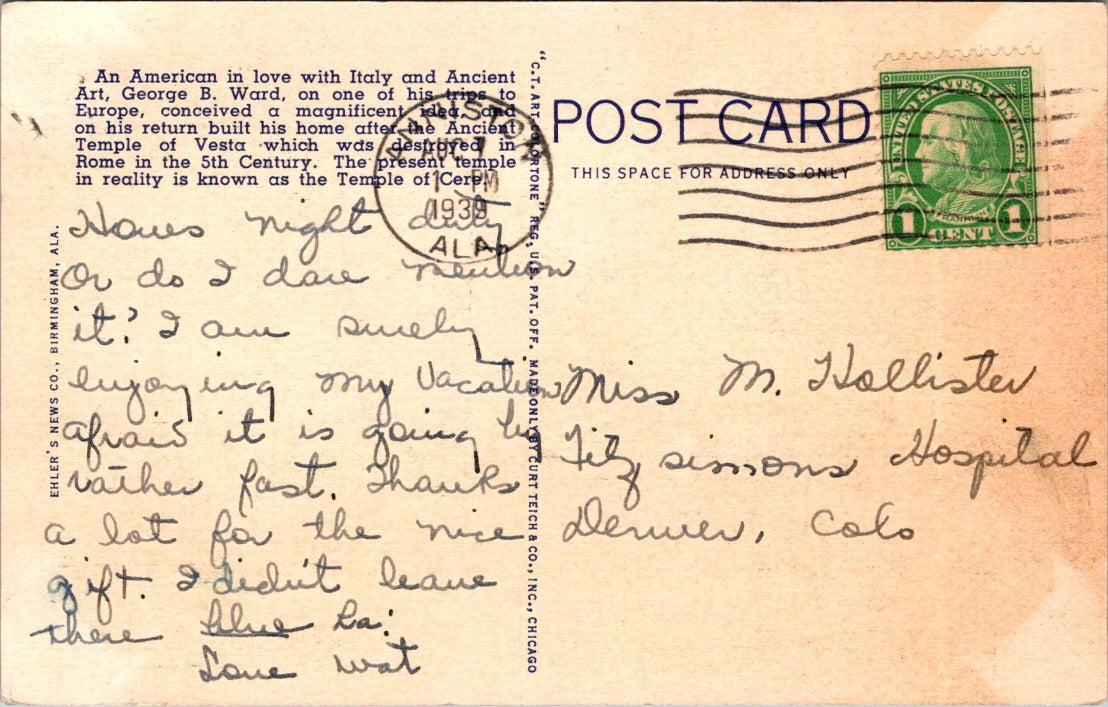 An American in love with Italy and Ancient
Art, George B. Ward, on one of his trips to
Europe, conceived a magnificent idea, and
on his return built his home after the Ancient
Temple of Vesta which was destroyed in
Rome in the 5th Century. The present temple
in reality is known as the Temple of Cere.
"C.T. ART COLORTONE" REG. U.S. PAT. OFF. MADE ONLY BY CURT TEICH & CO., INC., CHICAGO
EHLER'S NEWS CO., BIRMINGHAM, ALA.
ANNISTON
AUG 1
1 PM
1939
ALA.
POST CARD
THIS SPACE FOR ADDRESS ONLY
UNITED STATES POSTAGE
FRANKLIN
1 CENT 1
Hows night duty
Or do I dare mention
it? I am surely
enjoying my Vacation
afraid it is going by
rather fast. Thanks
a lot for the nice
gift. I didn't leave
there blue ha!
Love
Miss M. Hollister
Fitzsimons Hospital
Denver, Colo